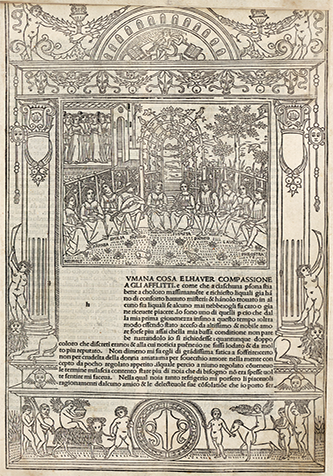 VMANA COSA E LHAVER COMPASSIONE
A GLI AFFLITTI. e come che a ciaschuna psona stia
bene a choloro massimamēte e richiesto liquali gia hā
no di conforto havuto mistieri: & hānolo trouato in al
cuno fra liquali se alcuno mai nebbe o gli fu caro o gia
ne riceuete piacere. Io sono uno di quelli p cio che dal
la mia prima giouenezza infino a questo tempo oltra
modo essendo stato acceso da altissimo & nobile amo
re forse piu assai chella mia bassa conditione non pare
be narrandolo io si richiedesse: quantunque doppo
h
coloro che discreti erano & alla cui noticia puenne ne fussi lodato & da mol
to piu reputato. Non dimeno mi fu egli di grādissima fatica a soffrire: certo
non per crudelta della donna amata: ma per souercho amore nella mente con
cepto da pocho regolato appetito. ilquale percio a niuno regolato
termine mi lasciua contento stare piu di noia che di bisogno nō era spesse uol
te sentire mi facea. Nella qual noia tanto refrigerio mi porsero li piaceuoli
ragionamenti dalcuno amico & le delecteuole sue cōsolatiōe che io porto fer